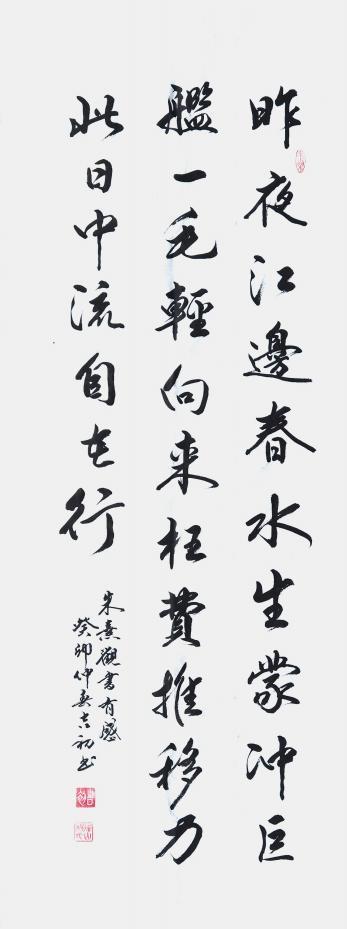 昨夜江邊春水生蒙冲巨
艦一毛輕向来枉費推移力
此日中流自在行
朱熹觀書有感
癸卯仲春吉初书